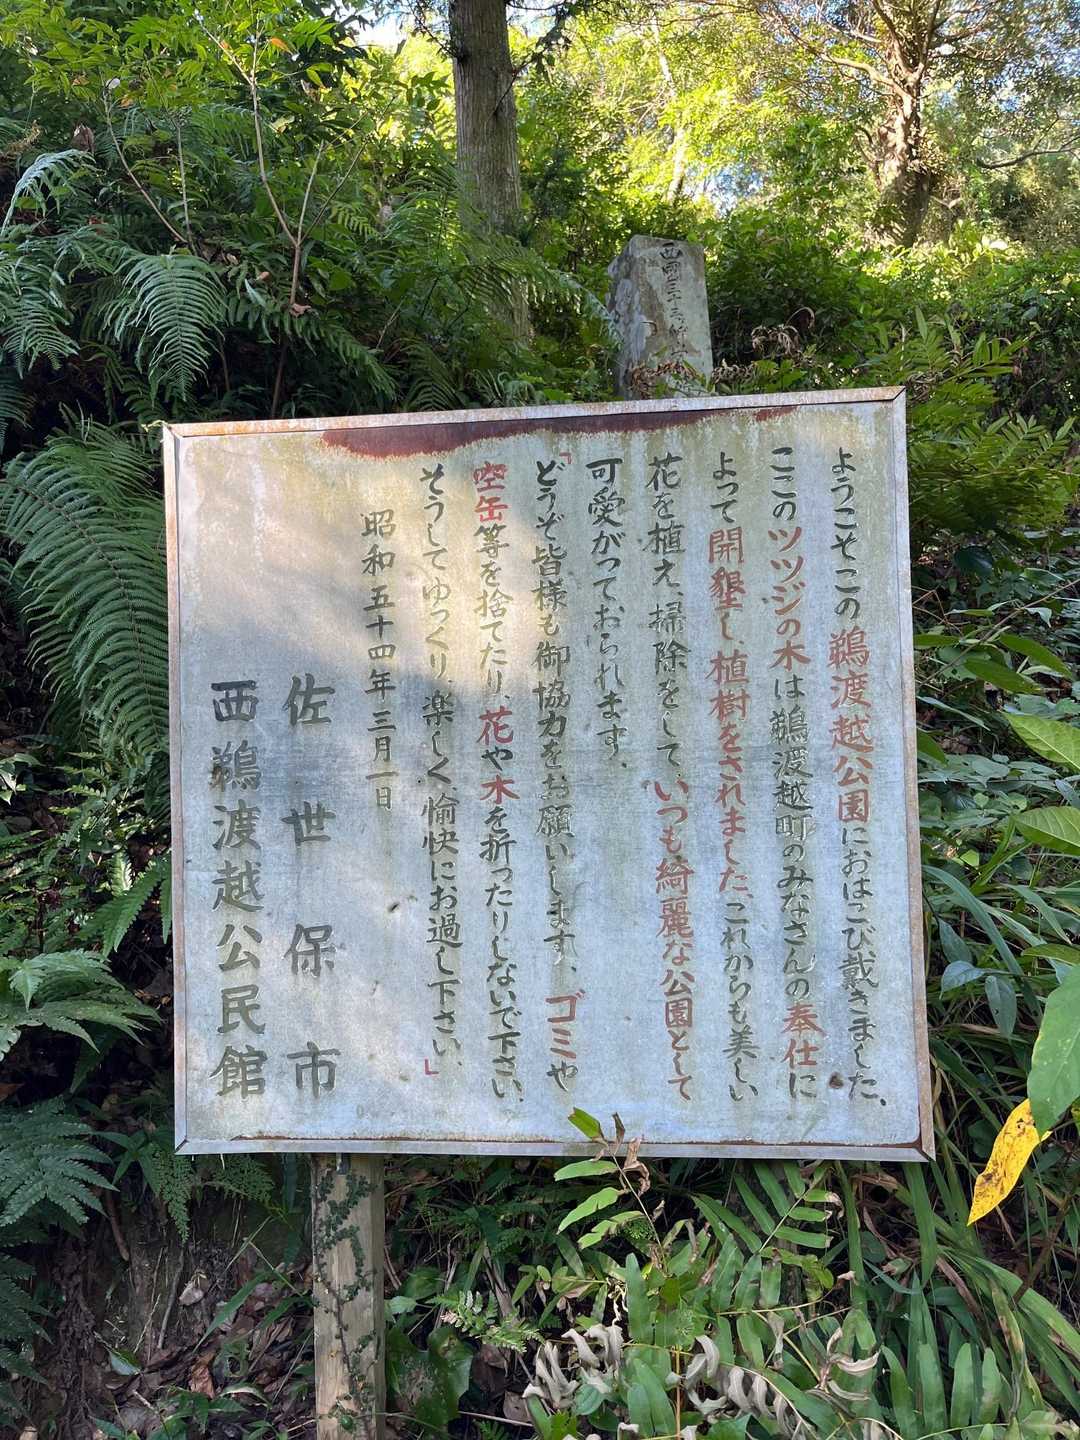 ようこそこの鵜渡越公園におはこび戴きました、
ここのツツジの木は鵜渡越町のみなさんの奉仕に
よって開墾し、植樹をされました、これからも美しい
花を植え、掃除をして、いつも綺麗な公園として
可愛がっておられます、
「どうぞ皆様も御協力をお願いします、ゴミや
空缶等を捨てたり、花や木を折ったりしないで下さい、
そうしてゆっくり、楽しく、愉快にお過し下さい、」
昭和五十四年三月一日
佐世保市
西鵜渡越公民館
西國三十三